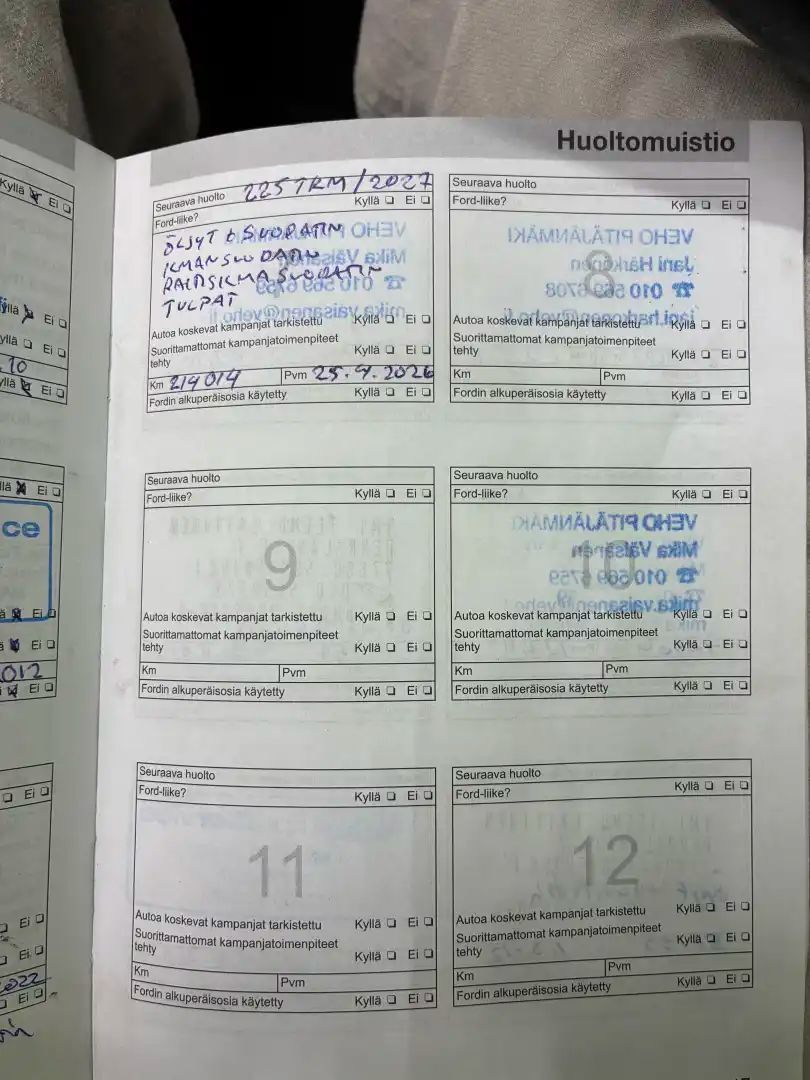 Huoltomuistio
Kyllä Ei
Seuraava huolto 225TKM/2027
Ford-liike? Kyllä Ei
ÖLJYT + SUODATIN
ILMANSUODATIN
RAITISILMASUODATIN
TULPAT
Autoa koskevat kampanjat tarkistettu Kyllä Ei
Suorittamattomat kampanjatoimenpiteet
tehty Kyllä Ei
Km 214014 Pvm 25.4.2026
Fordin alkuperäisosia käytetty Kyllä Ei
Seuraava huolto
Ford-liike? Kyllä Ei
VEHO PITÄJÄNMÄKI
Jani Härkönen
8
010 569 8708
jani.harkonen@veho.fi
Autoa koskevat kampanjat tarkistettu Kyllä Ei
Suorittamattomat kampanjatoimenpiteet
tehty Kyllä Ei
Km Pvm
Fordin alkuperäisosia käytetty Kyllä Ei
Seuraava huolto
Ford-liike? Kyllä Ei
9
Autoa koskevat kampanjat tarkistettu Kyllä Ei
Suorittamattomat kampanjatoimenpiteet
tehty Kyllä Ei
Km Pvm
Fordin alkuperäisosia käytetty Kyllä Ei
Seuraava huolto
Ford-liike? Kyllä Ei
VEHO PITÄJÄNMÄKI
Mika Väisänen
10
010 569 8759
mika.vaisanen@veho.fi
Autoa koskevat kampanjat tarkistettu Kyllä Ei
Suorittamattomat kampanjatoimenpiteet
tehty Kyllä Ei
Km Pvm
Fordin alkuperäisosia käytetty Kyllä Ei
Seuraava huolto
Ford-liike? Kyllä Ei
11
Autoa koskevat kampanjat tarkistettu Kyllä Ei
Suorittamattomat kampanjatoimenpiteet
tehty Kyllä Ei
Km Pvm
Fordin alkuperäisosia käytetty Kyllä Ei
Seuraava huolto
Ford-liike? Kyllä Ei
12
Autoa koskevat kampanjat tarkistettu Kyllä Ei
Suorittamattomat kampanjatoimenpiteet
tehty Kyllä Ei
Km Pvm
Fordin alkuperäisosia käytetty Kyllä Ei